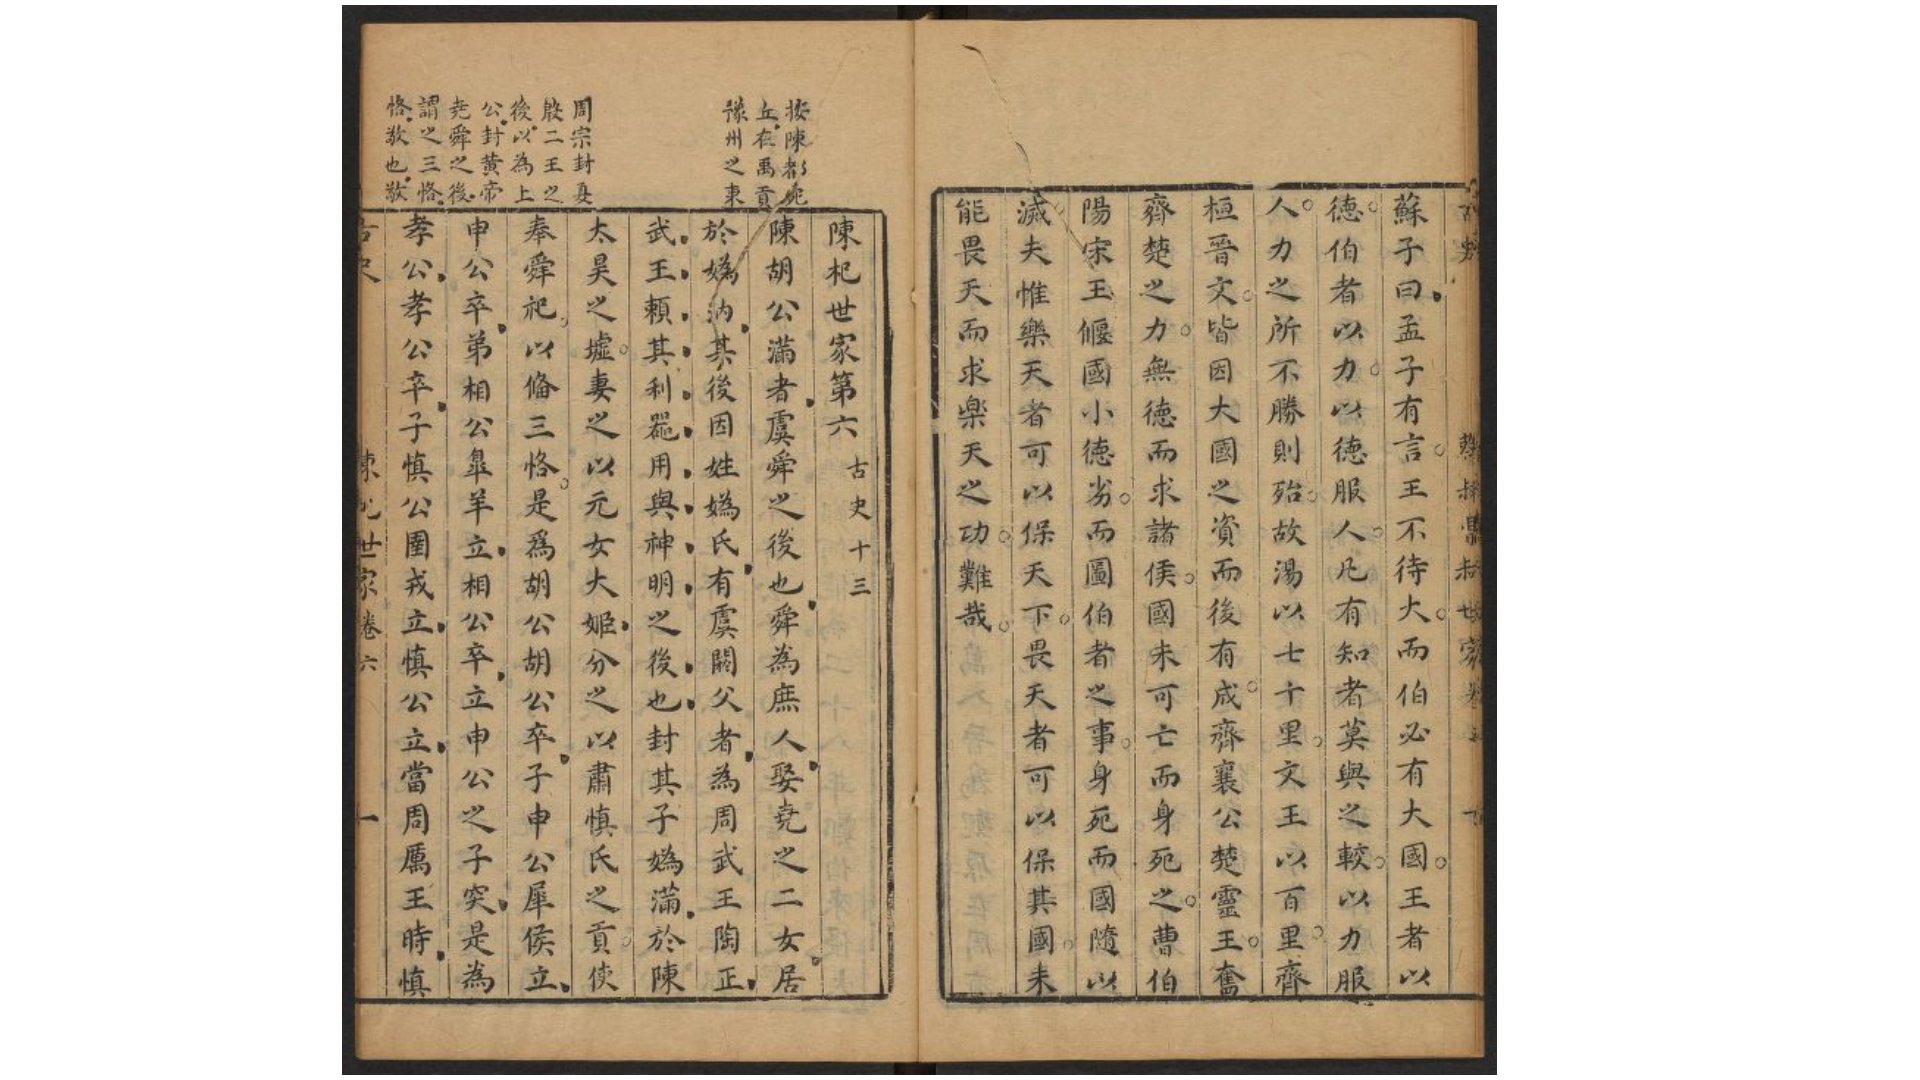 蘇子曰孟子有言王不待大而伯必有大國王者以
德伯者以力以德服人凡有知者莫與之較以力服
人力之所不勝則殆故湯以七十里文王以百里齊
桓晉文皆因大國之資而後有成齊襄公楚靈王奮
齊楚之力無德而求諸侯國未可亡而身死之曹伯
陽宋王偃國小德劣而圖伯者之事身死而國隨以
滅夫惟樂天者可以保天下畏天者可以保其國未
能畏天而求樂天之功難哉
按陳都宛
丘在禹貢
豫州之東
周宗封夏
殷二王之
後以為上
公封黃帝
堯舜之後
謂之三恪
恪敬也敬
陳杞世家第六 古史十三
陳胡公滿者虞舜之後也舜為庶人娶堯之二女居
於媯汭其後因姓媯氏有虞閼父者為周武王陶正
武王賴其利器用與神明之後也封其子媯滿於陳
太昊之墟妻之以元女大姬分之以肅慎氏之貢使
奉舜祀以偹三恪是爲胡公胡公卒子申公犀侯立
申公卒弟相公臯羊立相公卒立申公之子突是為
孝公孝公卒子慎公圉戎立慎公立當周厲王時慎
古史 陳杞世家卷六 一